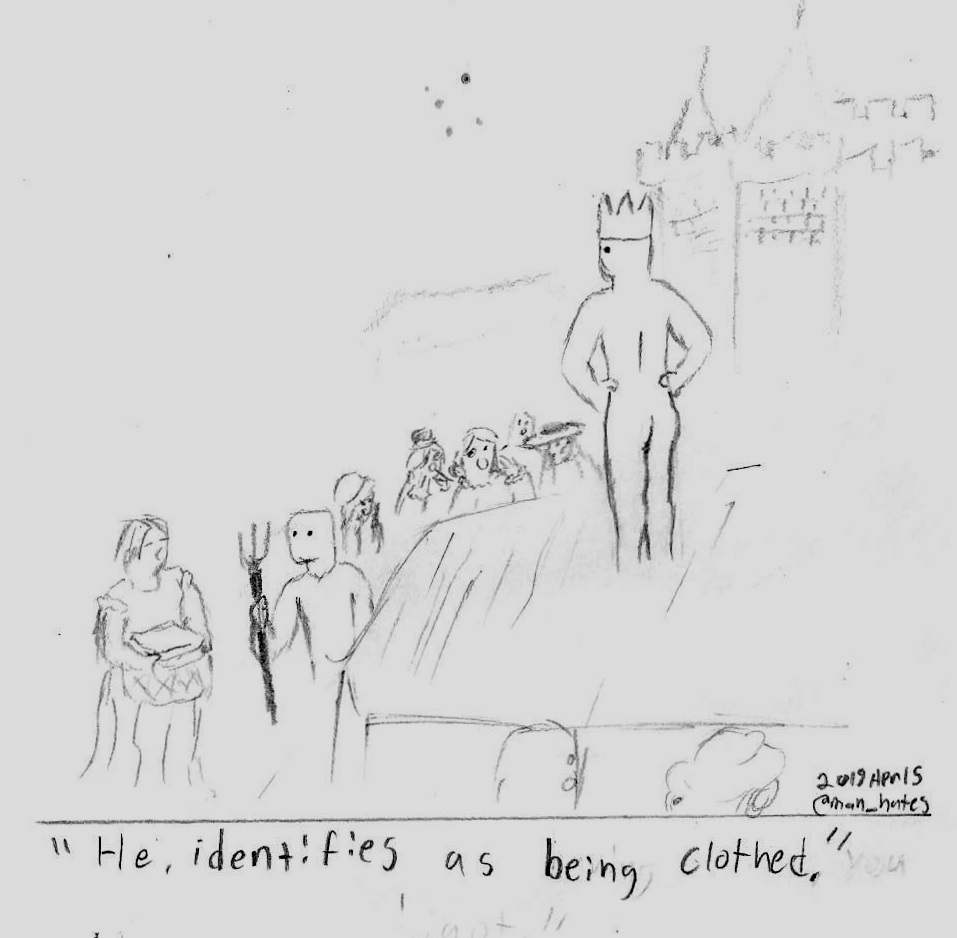 2019 Apr 15
@man_hates
"He, identifies as being clothed."
you